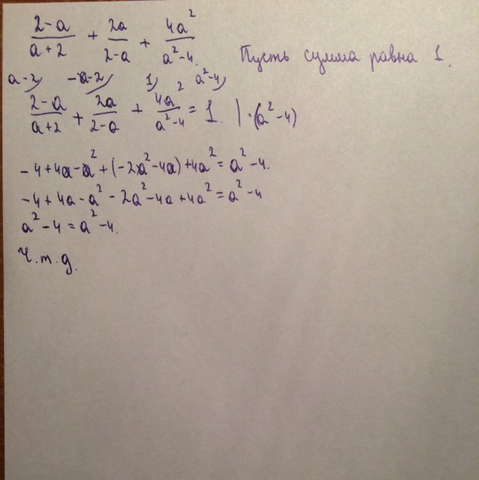 (2-a)/(a+2) + 2a/(2-a) + 4a²/(a²-4). Пусть сумма равна 1.
a-2) -a-2) 1) a²-4)
(2-a)/(a+2) + 2a/(2-a) + 4a²/(a²-4) = 1. | ·(a²-4)
-4+4a-a²+(-2a²-4a)+4a²=a²-4.
-4+4a-a²-2a²-4a+4a²=a²-4
a²-4=a²-4.
Ч.т.д.